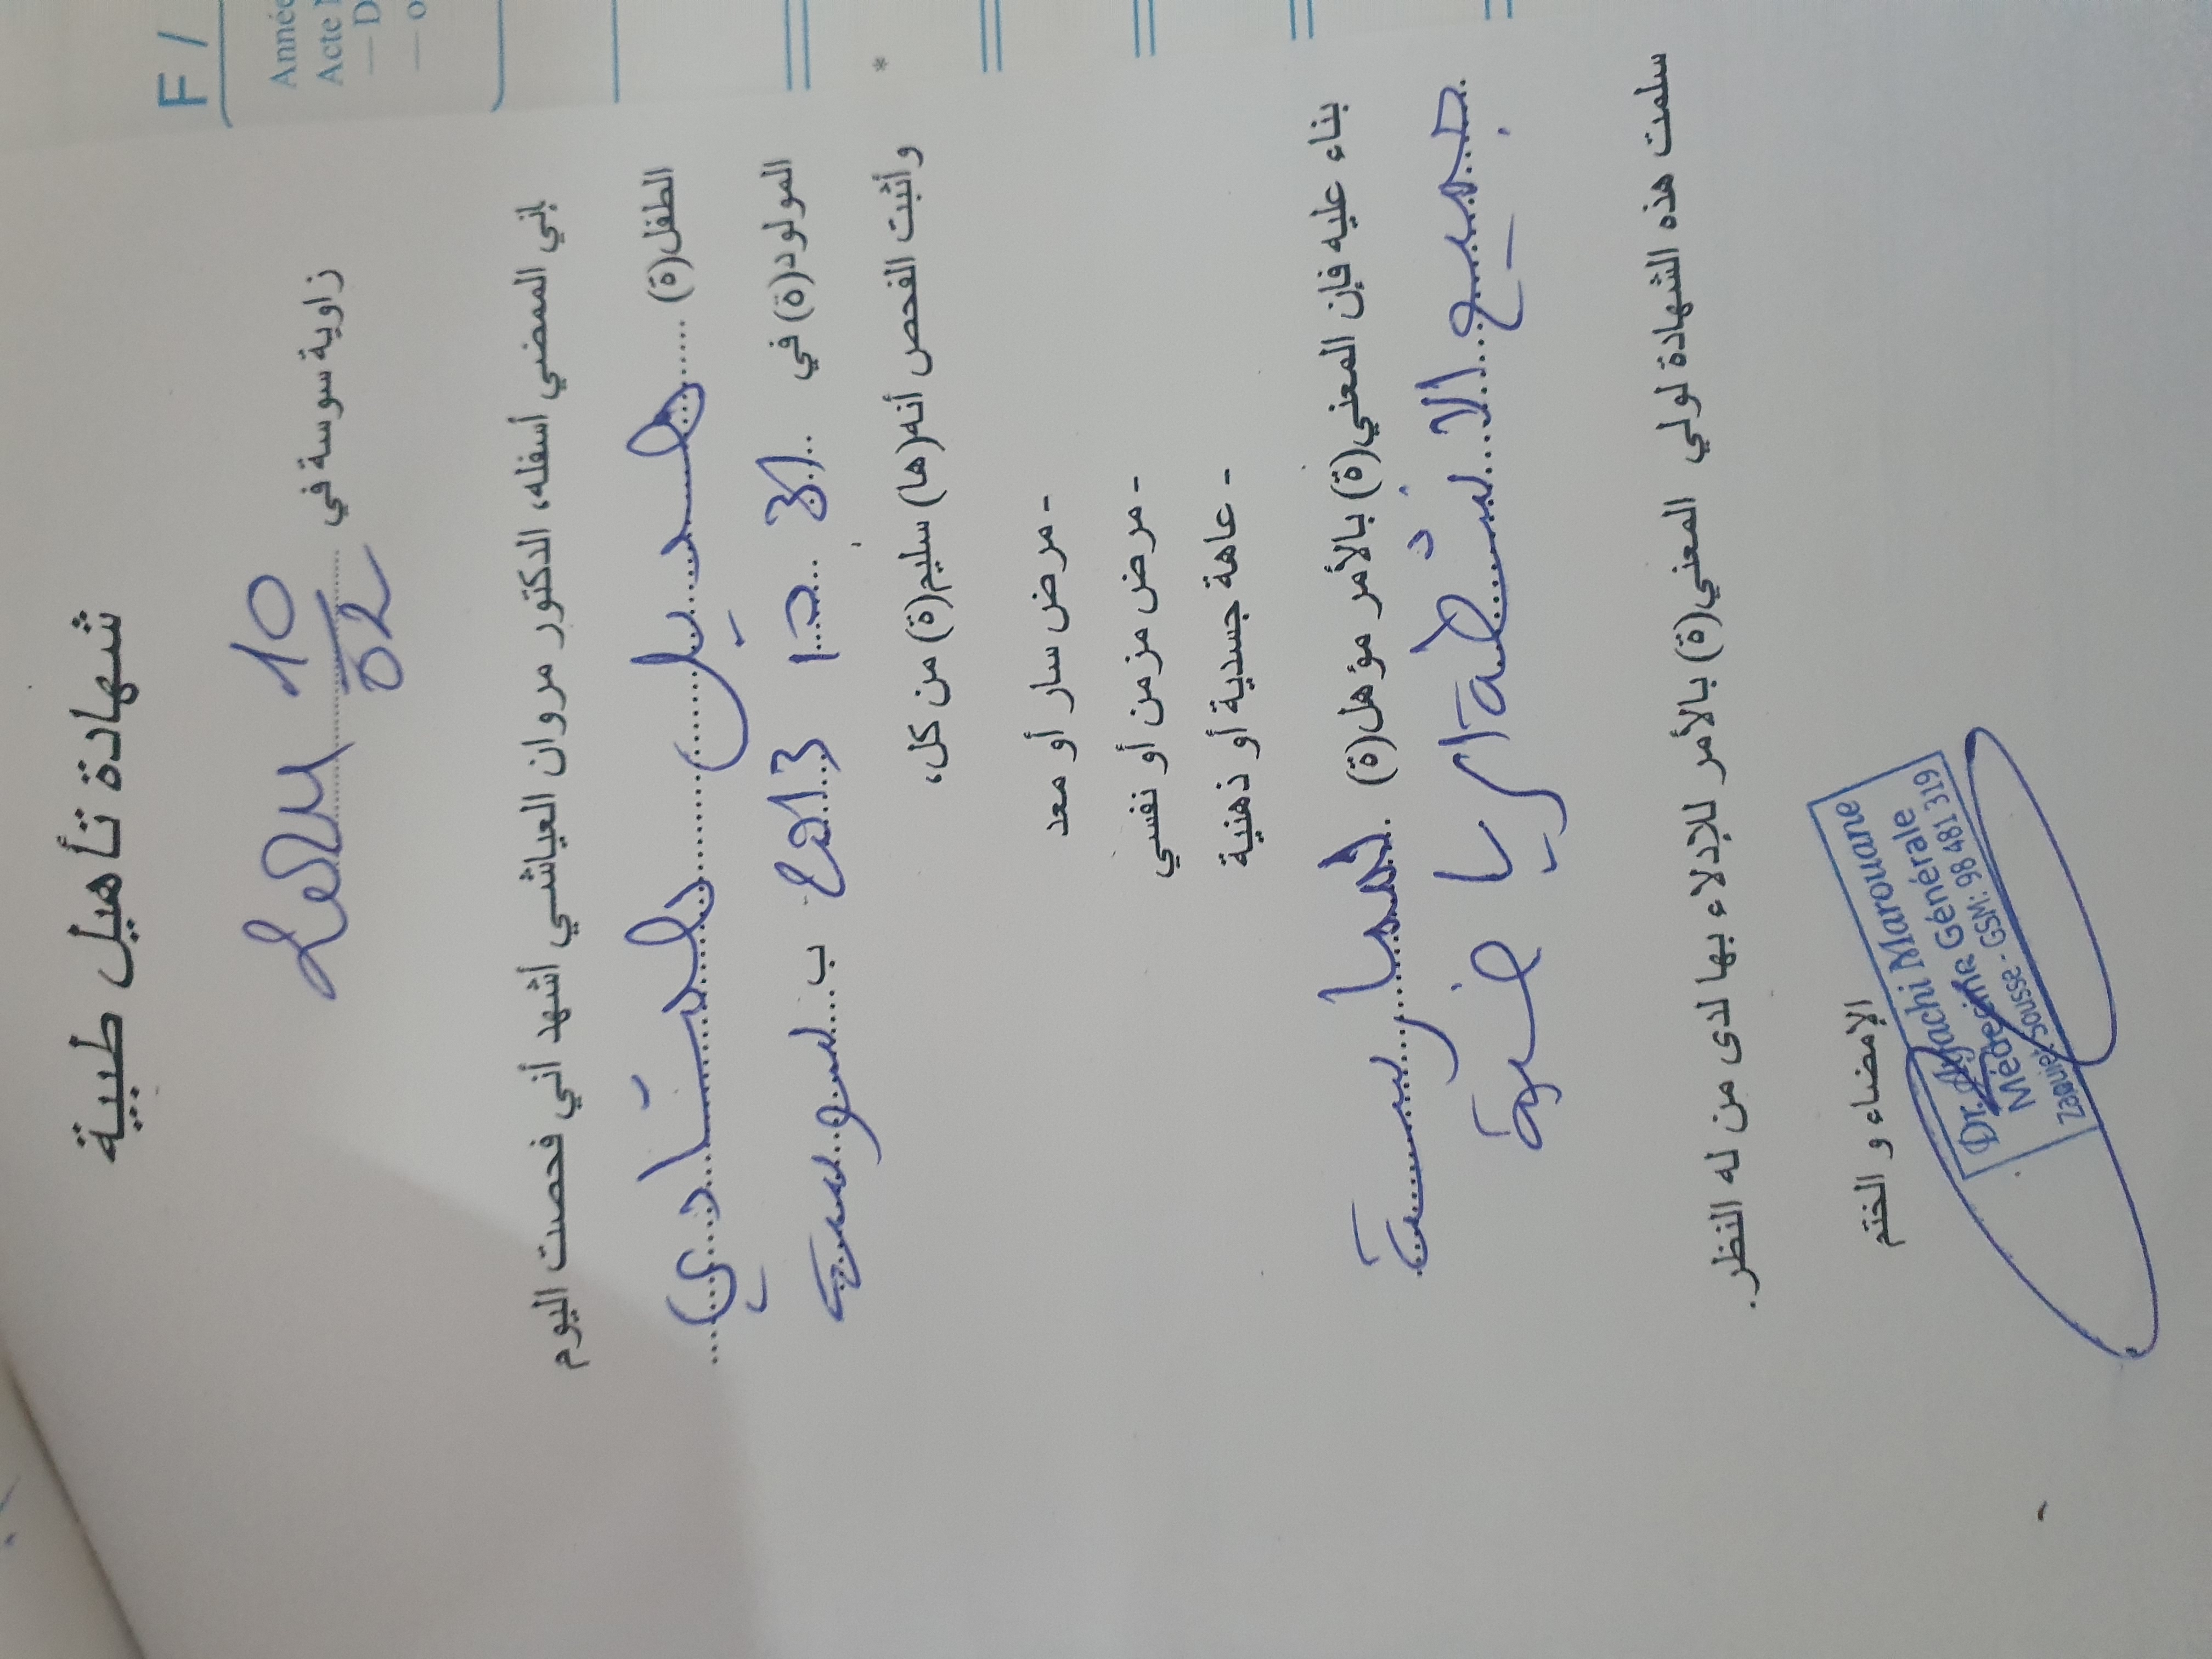 شهادة تأهيل طبية
زاوية سوسة في 10/02
إني الممضي أسفله، الدكتور مروان العياشي أشهد أني فحصت اليوم
الطفل(ة)
المولود(ة) في ب سوسة
و أثبت الفحص أنه(ها) سليم(ة) من كل،
- مرض سار أو معد
- مرض مزمن أو نفسي
- عاهة جسدية أو ذهنية
بناء عليه فإن المعني(ة) بالأمر مؤهل(ة) لممارسة
جميع الانشطة الرياضية
سلمت هذه الشهادة لولي المعني(ة) بالأمر للإدلاء بها لدى من له النظر.
الإمضاء و الختم
Dr. Ayachi Marouane
Médecine Générale
Zaouiet Sousse - GSM: 98 481 319
F /
Année
Acte
— D
— o
*